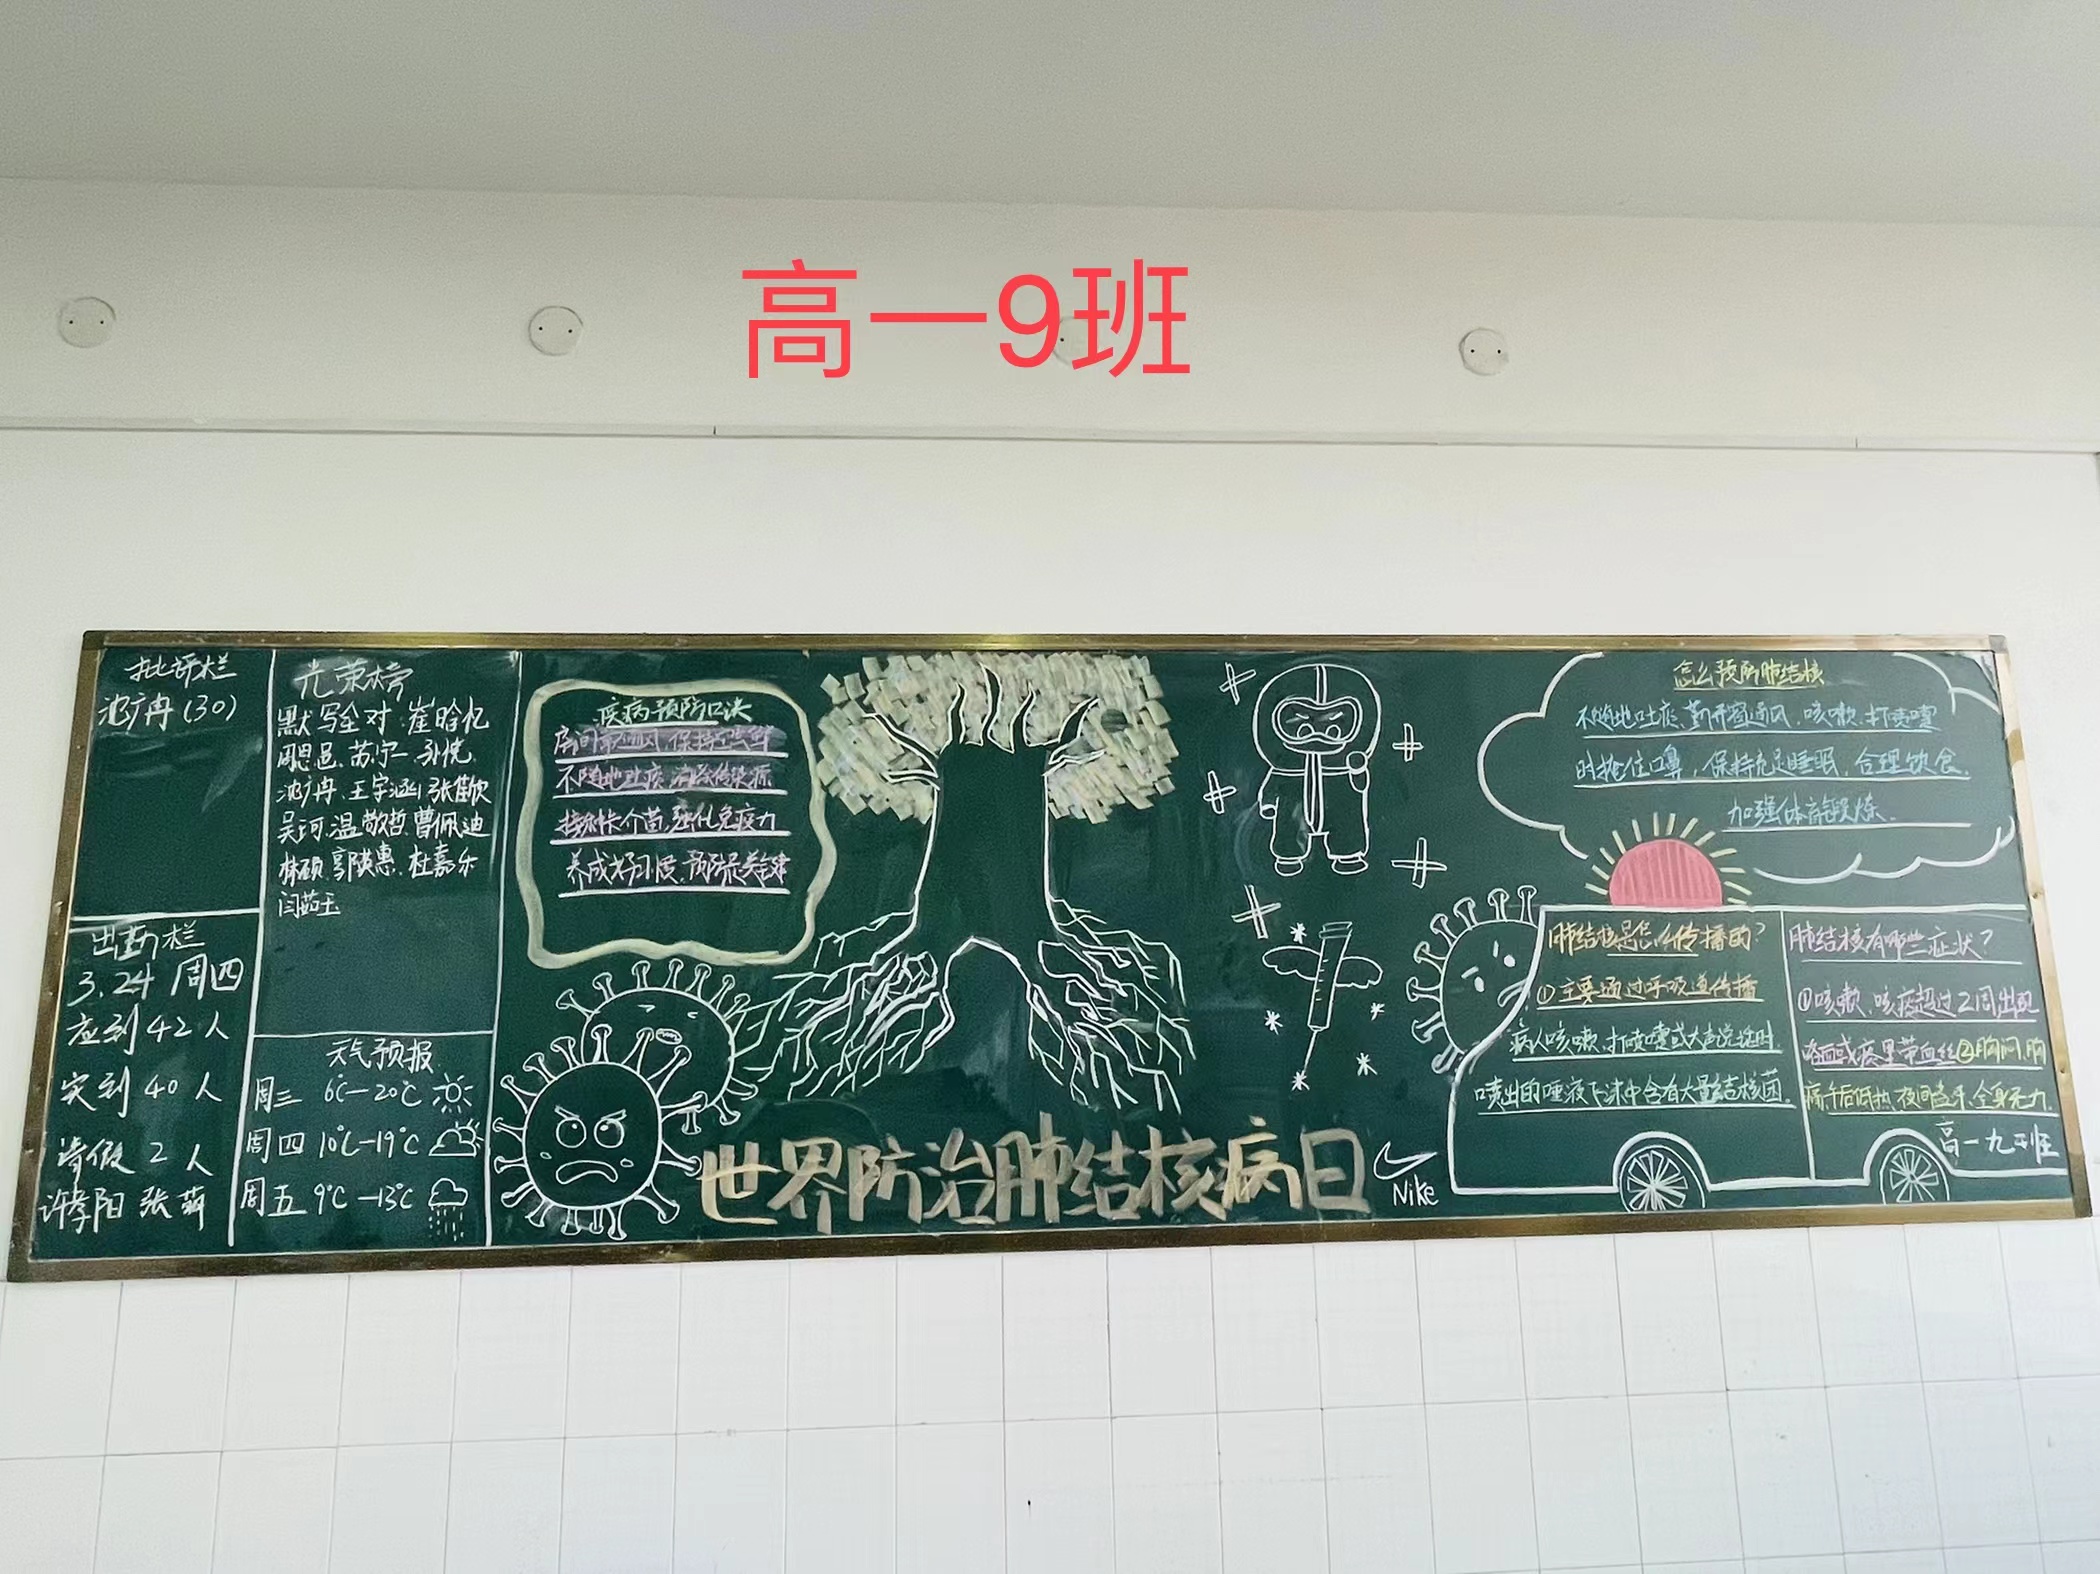 高一9班
批评栏
(30)
出勤栏
3.24 周四
应到 42 人
实到 40 人
请假 2 人
许孝阳 张
光荣榜
默写全对 崔晗忆
周思邑、芮宁一、孙悦
冉、王宇涵、张佳欣
吴珂、温敬哲、曹佩迪
林硕、郭瑛惠、杜嘉乐
闫茹玉
天气预报
周三 6℃—20℃
周四 10℃—19℃
周五 9℃—13℃
疾病预防口诀
房间常通风,保持空气鲜
不随地吐痰,消除传染源
接种卡介苗,强化免疫力
养成好习惯,预防是关键
世界防治肺结核病日
Nike
怎么预防肺结核
不随地吐痰、勤开窗通风、咳嗽、打喷嚏
时掩住口鼻,保持充足睡眠,合理饮食,
加强体育锻炼.
肺结核是怎么传播的?
①主要通过呼吸道传播
病人咳嗽、打喷嚏或大声说话时,
喷出的唾液飞沫中含有大量结核菌.
肺结核有哪些症状?
①咳嗽、咳痰超过2周出现
咯血或痰里带血丝②胸闷、胸
痛午后低热、夜间盗汗、全身无力.
高一九班